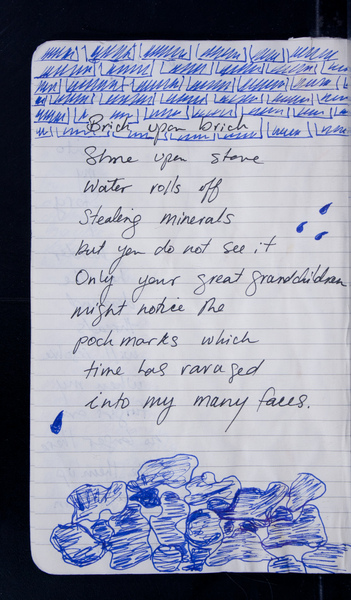 Brick upon brick
Stone upon stone
Water rolls off
Stealing minerals
but you do not see it
Only your great grandchildren
might notice the
pock marks which
time has ravaged
into my many faces.